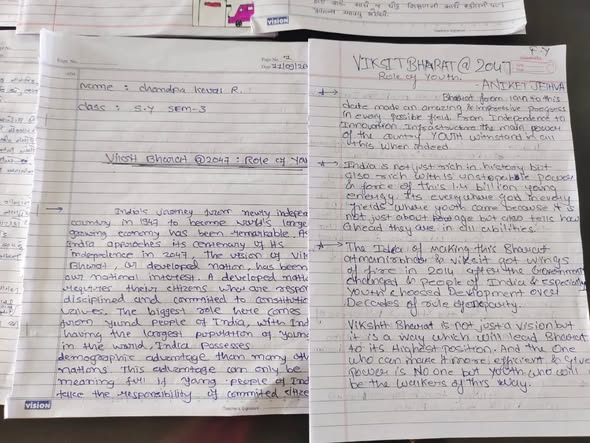 vision
Page No. 1
Date
Name : chandpa kewal R.
Class : S.Y SEM-3
Viksit Bharat @2047 : Role of You
India's journey from newly indepen
country in 1947 to become world's large
growing economy has been remarkable. As
India approaches its centenary of its
Independence in 2047, The vision of Vik
Bharat, or developed nation, has been
our national interest. A developed natio
requires their citizens who are respon
disciplined and commited to constitutio
values. The biggest role here comes
from yound people of India, with Ind
having the largest population of young
in the world. India Possesses
demographic advantage than many oth
nations. This advantage can only be
meaning full if young people of Ind
take the responsibility of commited citize
VISION
Teacher's Signature
F.Y
VIKSIT BHARAT @ 2047
Role of YOUTH.
- ANIKET JETHVA
Bharat from 1947 to this
date made an amazing & impressive progress
in every posible field. From Independence to
Innovation Infrastructure the main power
of the country YOUTH withstand in all
this when indeed.
India is not just rich in history but
also rich with is unstoppable power
& force of this 1.4 billion young
energy. Its everywhere goes in every
fields where youth came because it is
not just about age but also tells how
Ahead they are in all cibilities.
The Idea of making this Bharat
atmanirbhar & viksit got wings
of fire in 2014 after the Government
changed & people of India & especially
youth choosed Development over
Deccates of rule of
Vikshit Bharat is not just a vision but
it is a way which will lead Bharat
to its Highest Position. And the One
who can make it more efficient & give
power is No one but Youth who will
be the walkers of this way.
Teacher's Signature